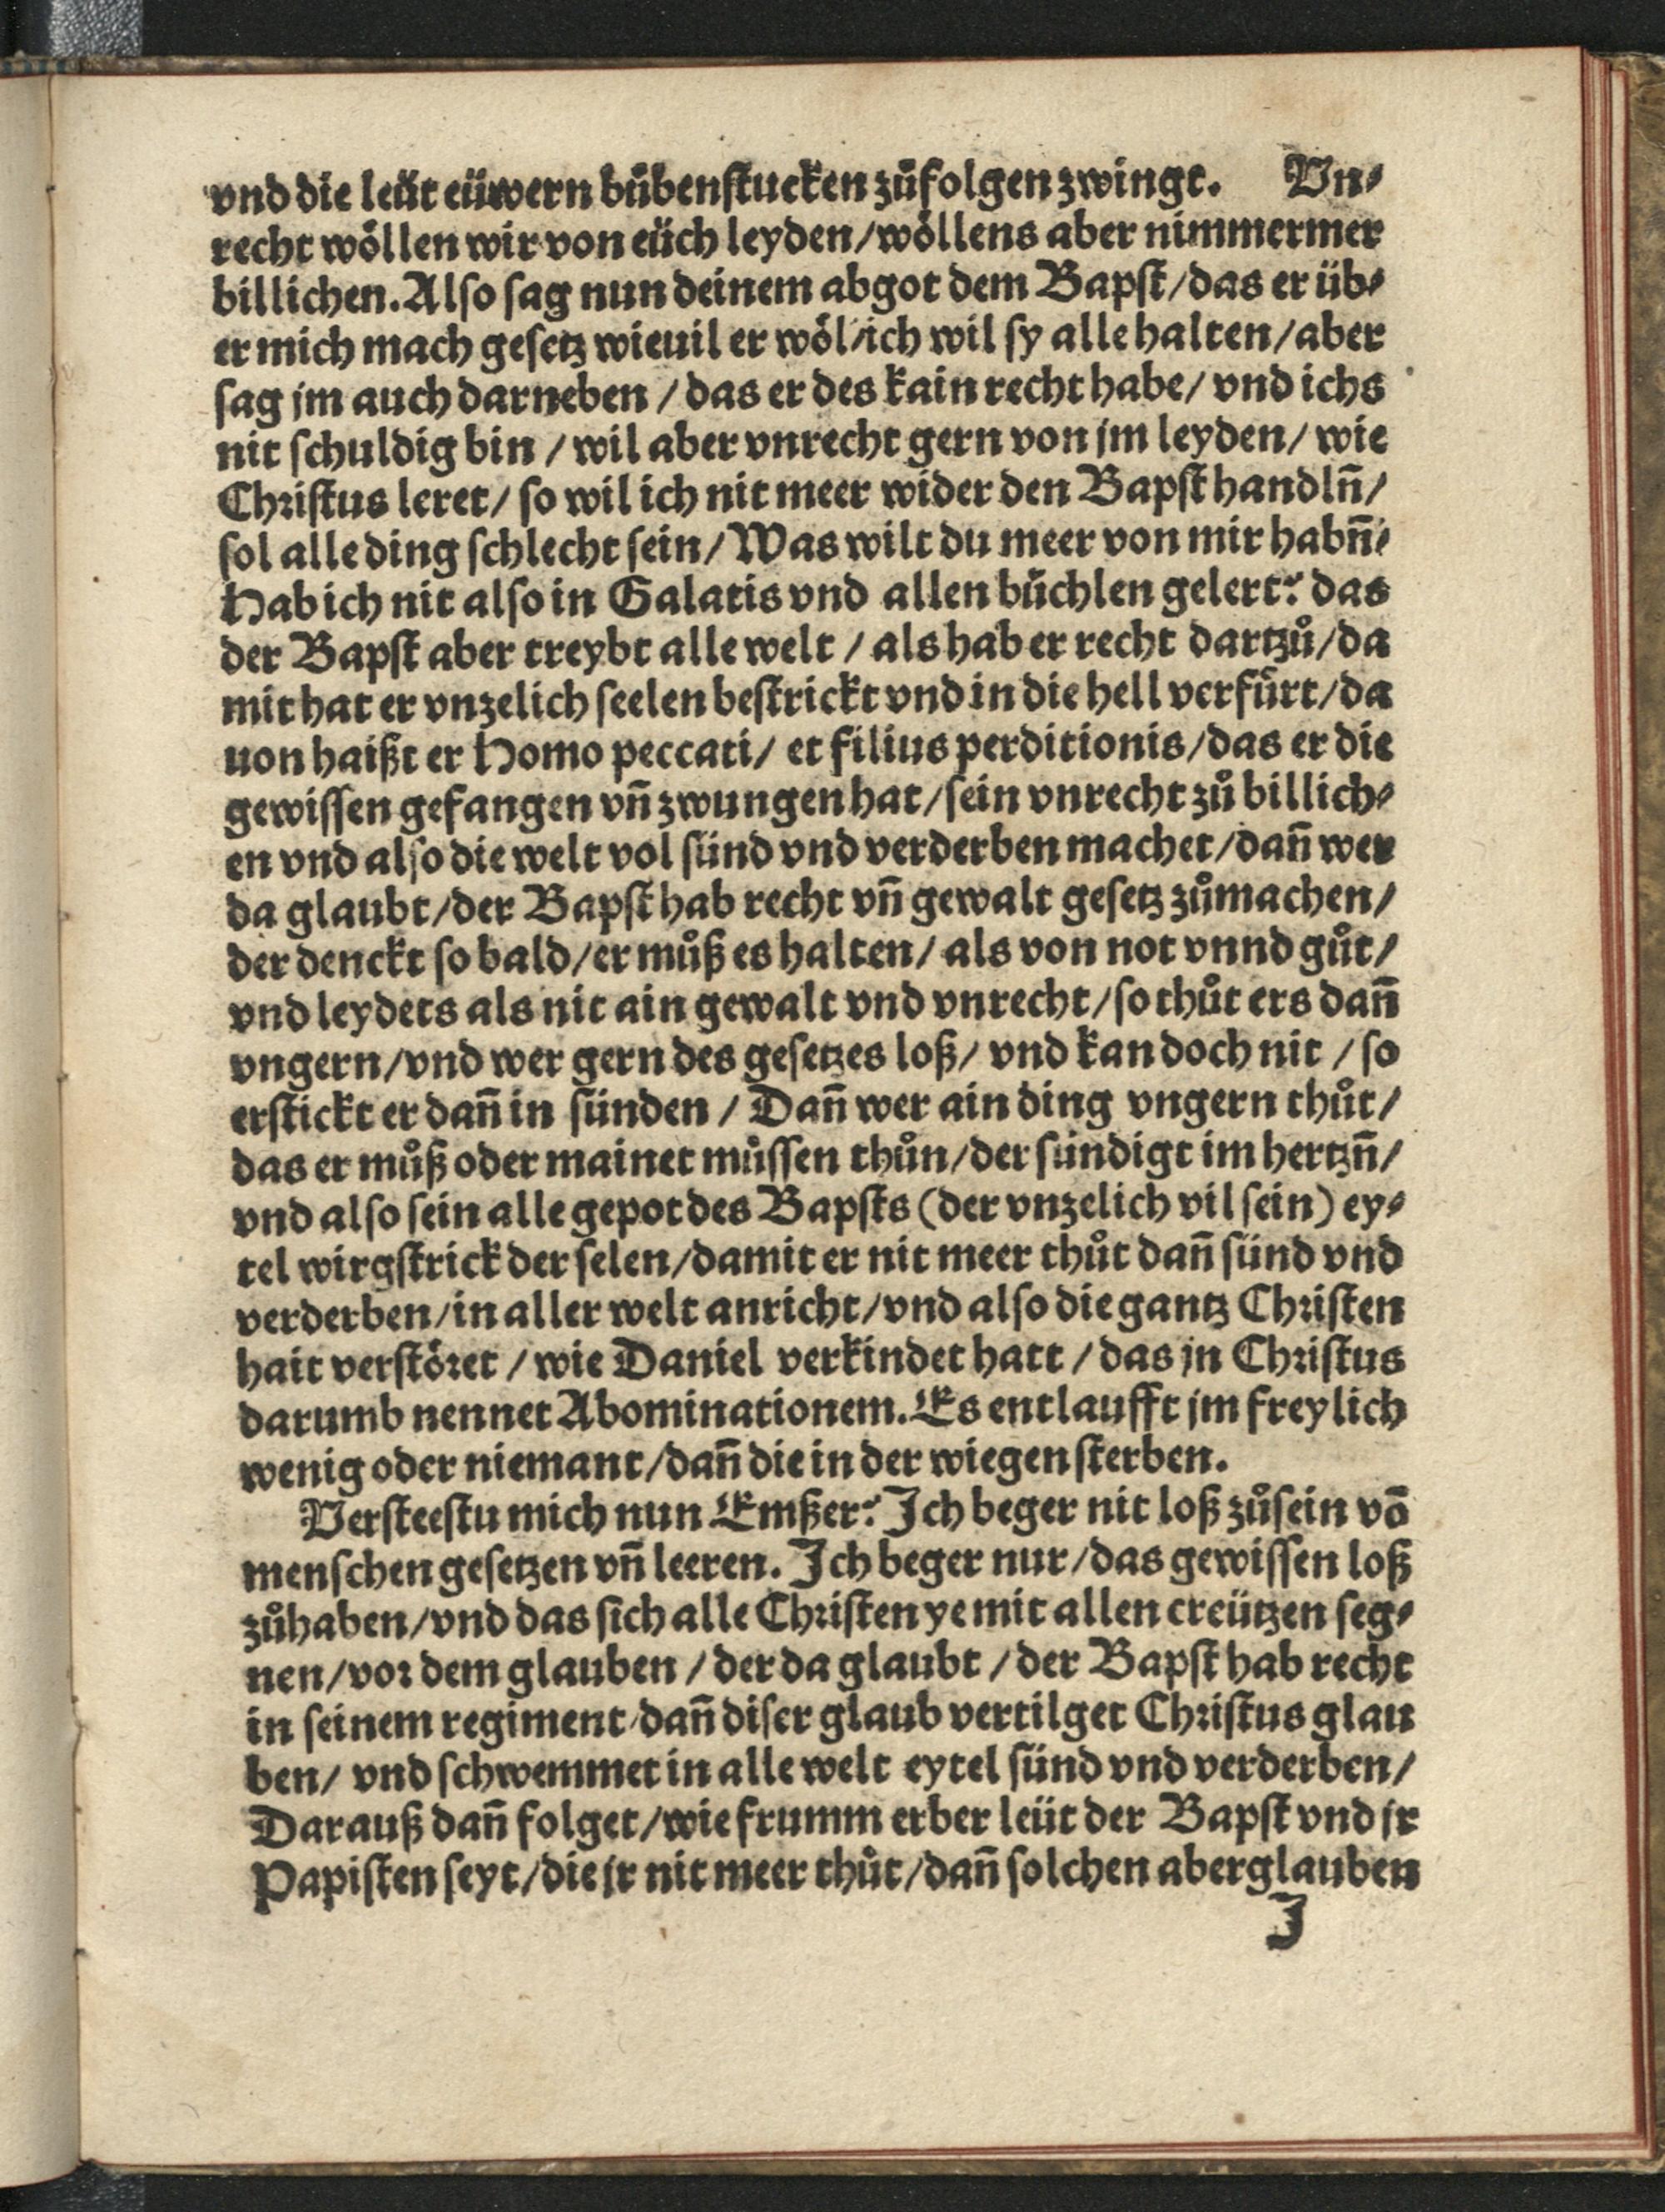 vnd die leüt eüwern bůbenſtucken zůfolgen zwingt. Vn⸗
recht wöllen wir von eüch leyden/wöllens aber nimmermer
billichen. Alſo ſag nun deinem abgot dem Bapſt/das er üb⸗
er mich mach geſetz wieuil er wöl/ich wil ſy alle halten/aber
ſag jm auch darneben / das er des kain recht habe/ vnd ichs
nit ſchuldig bin / wil aber vnrecht gern von jm leyden/ wie
Chꝛiſtus leret/ ſo wil ich nit meer wider den Bapſt handlñ/
ſol alle ding ſchlecht ſein/Was wilt du meer von mir habñ⸗
Hab ich nit alſo in Galatis vnd allen büchlen gelert? das
der Bapſt aber treybt alle welt / als hab er recht dartzů/da
mit hat er vnzelich ſeelen beſtrickt vnd in die hell verfürt/da
uon haißt er Homo peccati/ et filius perditionis/das er die
gewiſſen gefangen vñ zwungen hat/ſein vnrecht zů billich⸗
en vnd alſo die welt vol ſünd vnd verderben machet/dañ wer
da glaubt/der Bapſt hab recht vñ gewalt geſetz zůmachen/
der denckt ſo bald/er můß es halten/ als von not vnnd gůt/
vnd leydets als nit ain gewalt vnd vnrecht/ſo thůt ers dañ
vngern/vnd wer gern des geſetzes loß/ vnd kan doch nit / ſo
erſtickt er dañ in ſünden / Dañ wer ain ding vngern thůt/
das er můß oder mainet můſſen thůn/der ſündigt im hertzñ/
vnd alſo ſein alle gepot des Bapſts (der vnzelich vil ſein) ey⸗
tel wirgſtrick der ſelen/damit er nit meer thůt dañ ſünd vnd
verderben/in aller welt anricht/vnd alſo die gantz Chꝛiſten
hait verſtöꝛet / wie Daniel verkindet hatt / das jn Chꝛiſtus
darumb nennet Abominationem. Es entlaufft jm freylich
wenig oder niemant/dañ die in der wiegen ſterben.
Verſteeſtu mich nun Emßer? Ich beger nit loß zůſein võ
menſchen geſetzen vñ leeren. Ich beger nur/das gewiſſen loß
zůhaben/vnd das ſich alle Chꝛiſten ye mit allen creützen ſeg⸗
nen/voꝛ dem glauben / der da glaubt / der Bapſt hab recht
in ſeinem regiment/dañ diſer glaub vertilget Chꝛiſtus glau
ben/ vnd ſchwemmet in alle welt eytel ſünd vnd verderben/
Darauß dañ folget/wie frumm erber leüt der Bapſt vnd jr
Papiſten ſeyt/die jr nit meer thůt/dañ ſolchen aberglauben
J